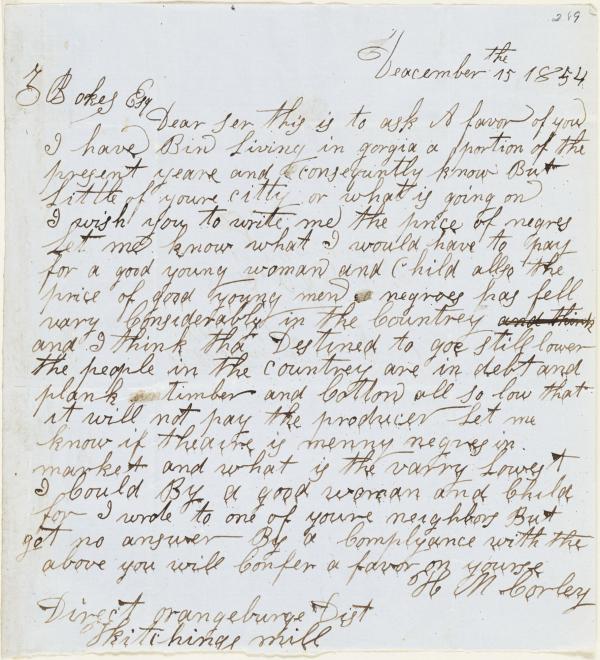 249
Deacember the 15 1854
Z B Oakes Esq
Dear ser this is to ask A favor of you
I have Bin Living in gorgia a portion of the
present yeare and consequntly know But
Little of youre citty or what is going on
I wish you to write me the price of negres
Let me know what I would have to pay
for a good young woman and Child allso the
price of good young men negroes has fell
vary Considerably in the Countrey and think
and I think tha Destined to goe still lower
the people in the Countrey are in debt and
plank timber and Cotton all so low that
it will not pay the producer Let me
know if theaire is menny negres in
market and what is the varry Lowest
I Could By a good woman and Child
for I wrote to one of youre neighbors But
got no answer By a Complyance with the
above you will Confer a favor on yourse
H M Corley
Direct orangeburge Dist
Kitchings mill